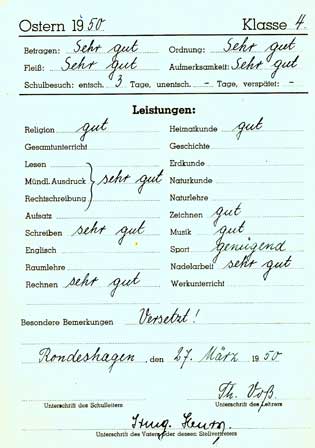 Ostern 1950. Klasse 4.
Betragen: Sehr gut Ordnung: Sehr gut
Fleiß: Sehr gut Aufmerksamkeit: Sehr gut
Schulbesuch: entsch. 3 Tage, unentsch. - Tage, verspätet: -
Leistungen:
Religion gut Heimatkunde gut
Gesamtunterricht Geschichte
Lesen Erdkunde
Mündl. Ausdruck } sehr gut Naturkunde
Rechtschreibung Naturlehre
Aufsatz Zeichnen gut
Schreiben sehr gut Musik gut
Englisch Sport genügend
Raumlehre Nadelarbeit sehr gut
Rechnen sehr gut Werkunterricht
Besondere Bemerkungen Versetzt!
Rondeshagen, den 27. März 1950
Th. Voß.
Unterschrift des Schulleiters Unterschrift des Lehrers
Unterschrift des Vaters oder dessen Stellvertreters